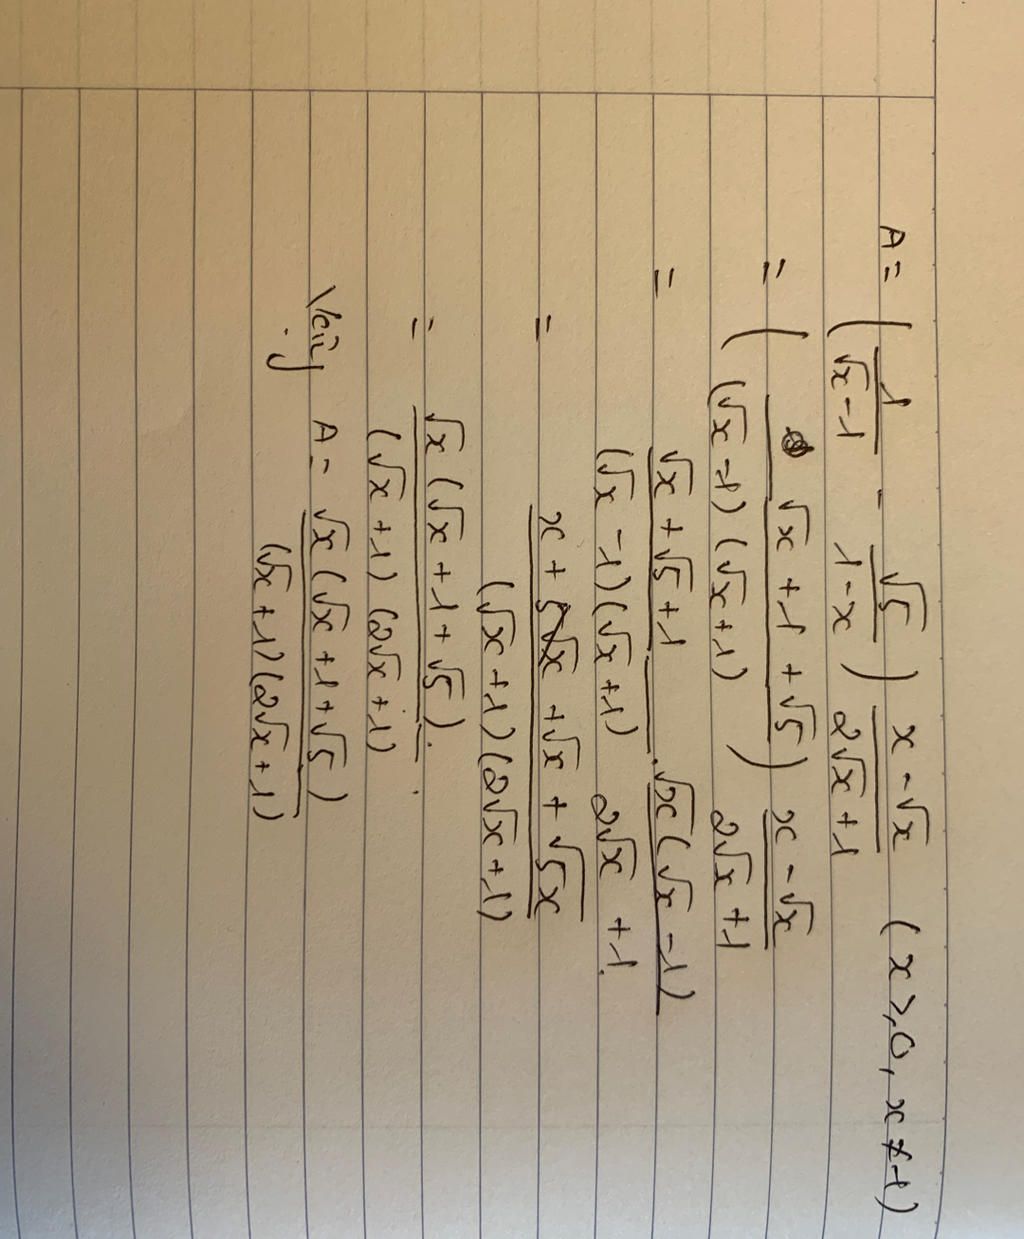 A = ( 1/(√x - 1) - √5/(1 - x) ) (x - √x)/(2√x + 1) (x ⩾ 0, x ≠ 1)
= ( (√x + 1 + √5)/((√x - 1)(√x + 1)) ) (x - √x)/(2√x + 1)
= (√x + √5 + 1)/((√x - 1)(√x + 1)) . √x(√x - 1)/(2√x + 1)
= (x + √x + √5x)/((√x + 1)(2√x + 1))
= √x(√x + 1 + √5)/((√x + 1)(2√x + 1)).
Vậy A = √x(√x + 1 + √5)/((√x + 1)(2√x + 1))